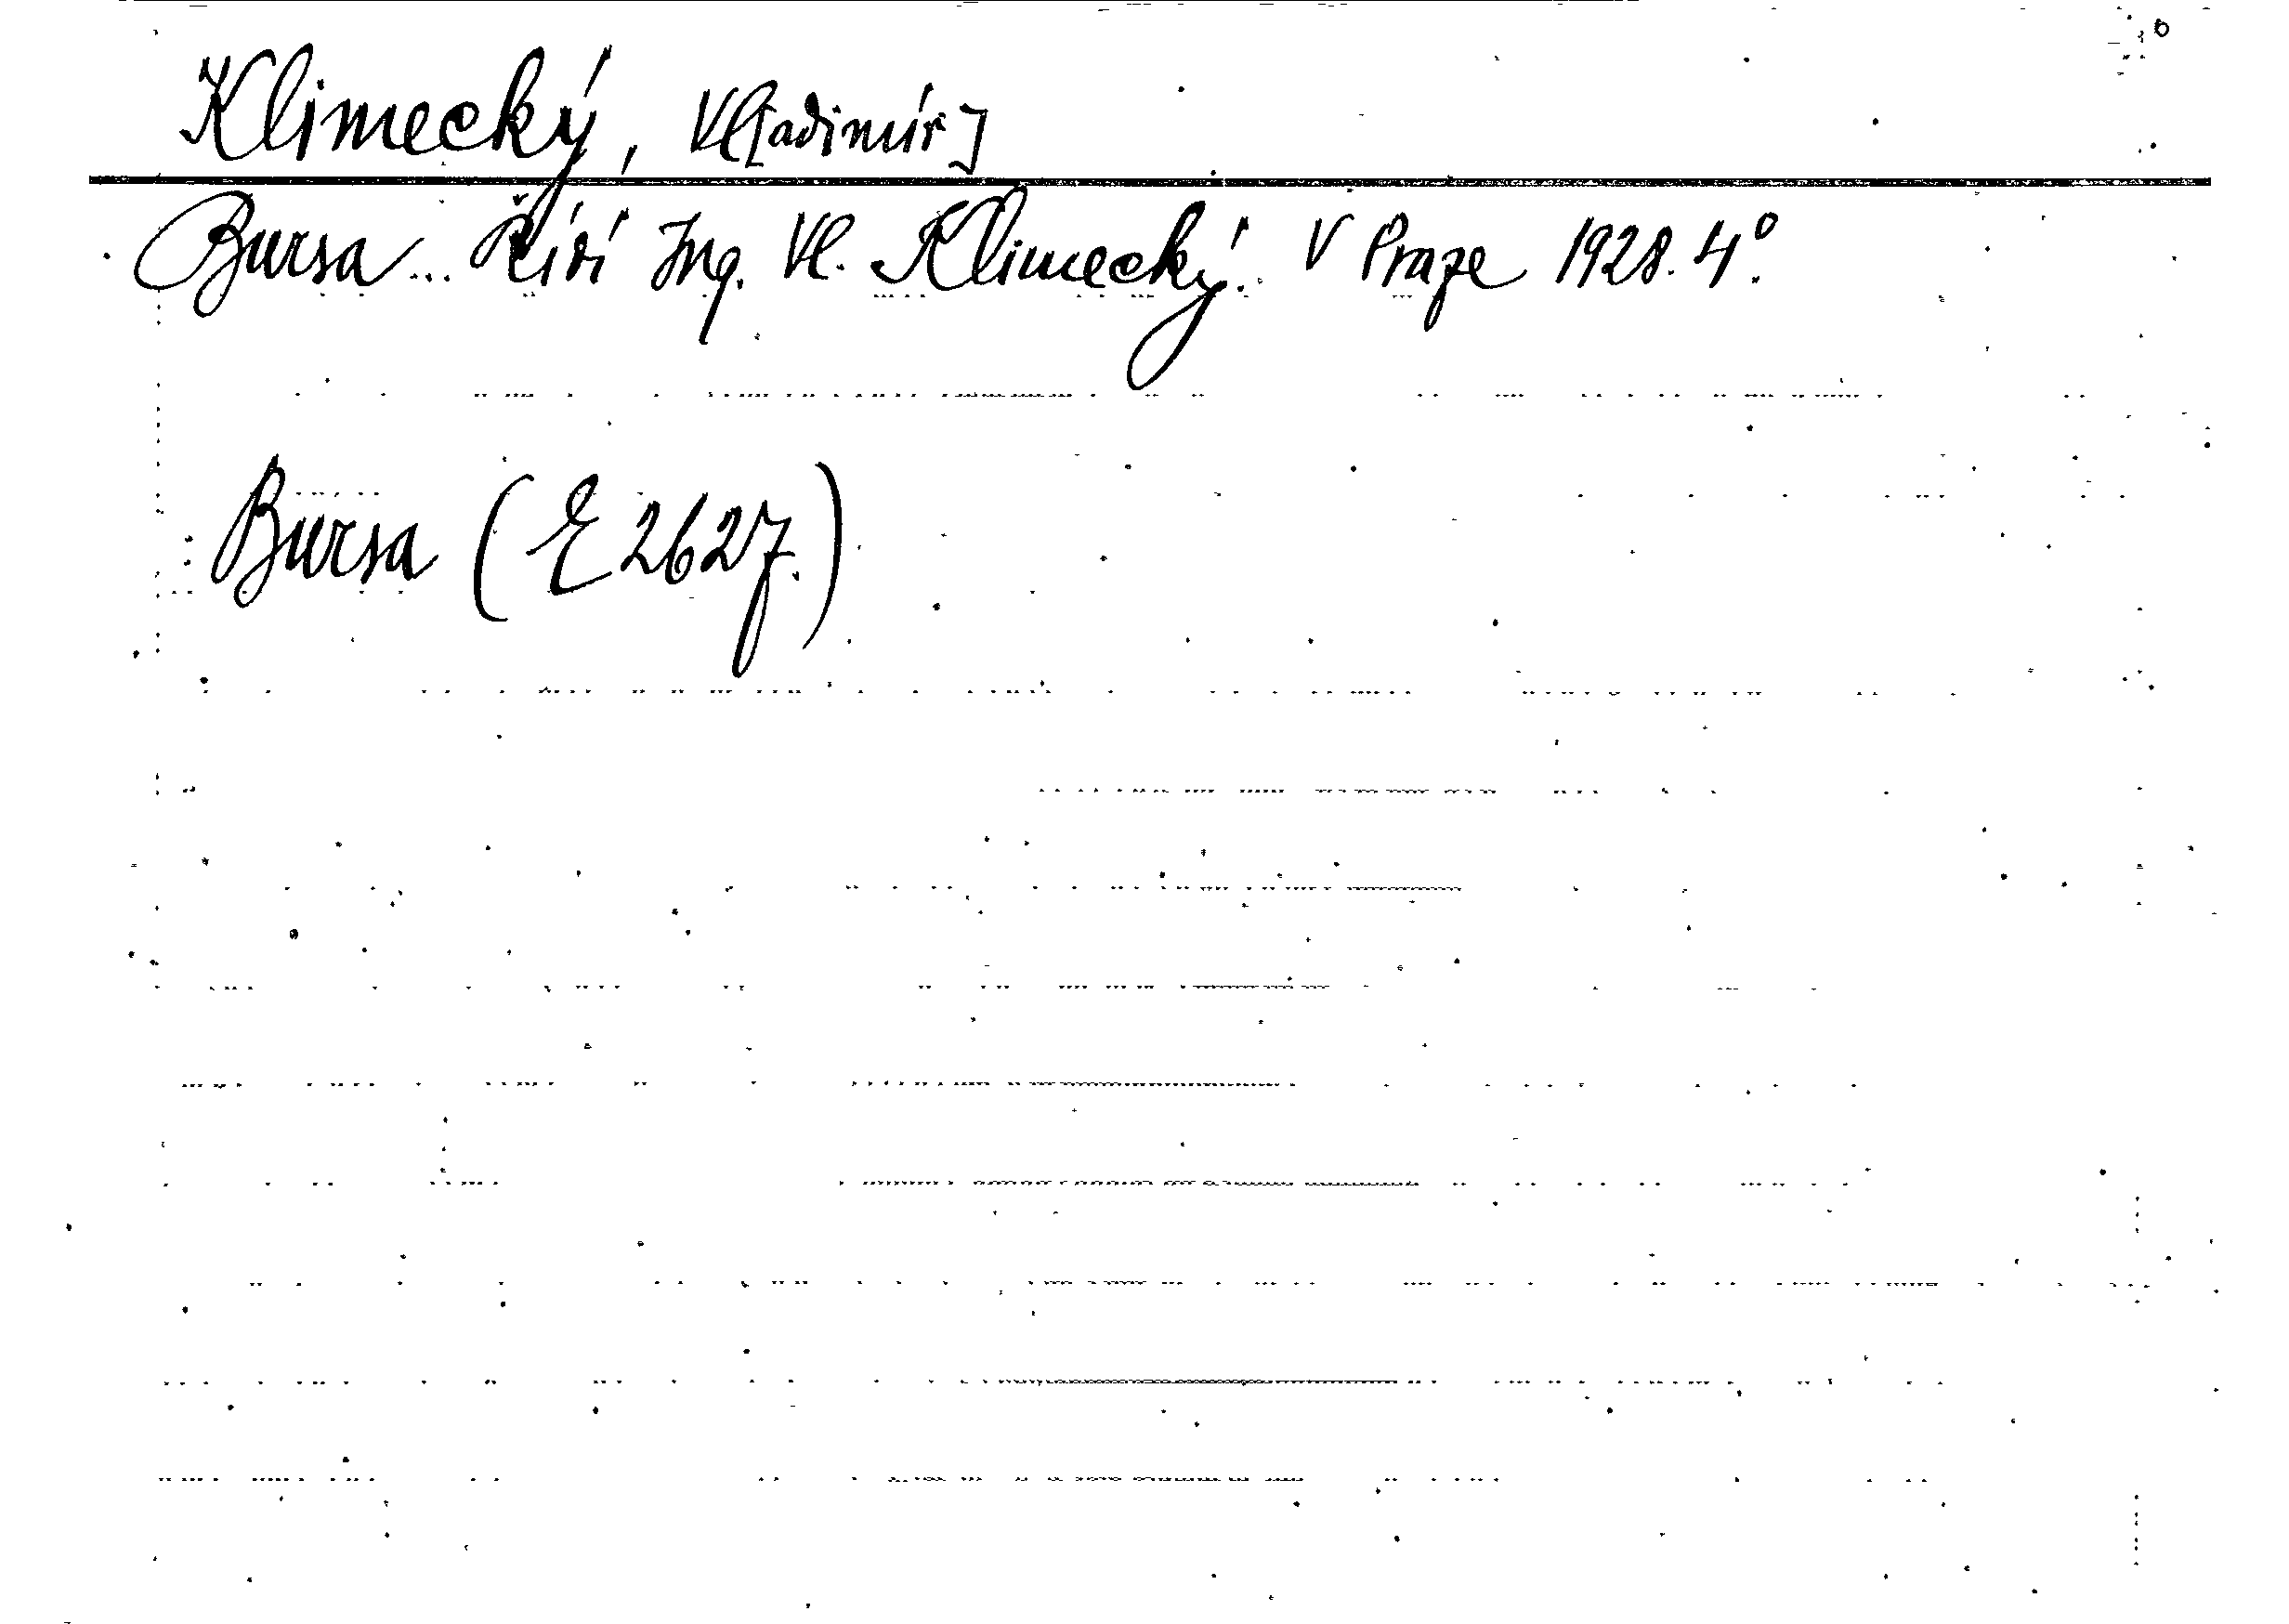 Klimecký, Vl[adimír]
Bursa... Řídí Ing. Vl. Klimecký. V Praze 1928. 4°.
Bursa (E 2627.)